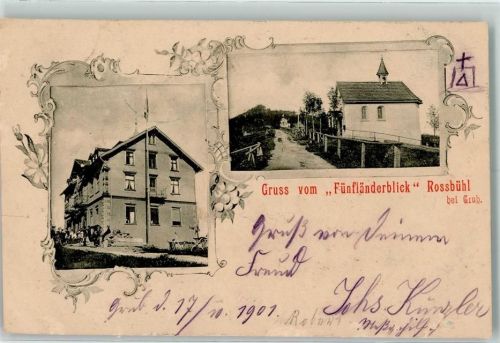 Gruss vom „Fünfländerblick" Rossbühl
bei Grub.
Gruß von Deinem
Freund
Grub d. 17/IV. 1901. Johs. Künzler
Robert